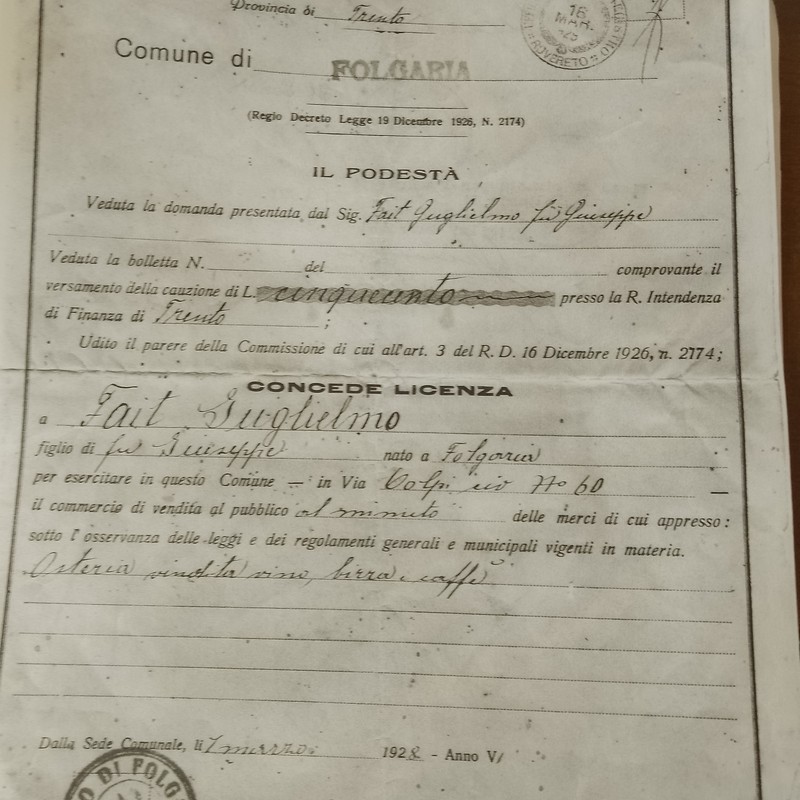 Provincia di Trento
16
MAR.
REGISTRO
ROVERETO
Comune di FOLGARIA
(Regio Decreto Legge 19 Dicembre 1926, N. 2174)
IL PODESTÀ
Veduta la domanda presentata dal Sig. Fait Guglielmo fu Giuseppe
Veduta la bolletta N. del comprovante il
versamento della cauzione di L. cinquecento presso la R. Intendenza
di Finanza di Trento ;
Udito il parere della Commissione di cui all'art. 3 del R. D. 16 Dicembre 1926, n. 2174;
CONCEDE LICENZA
a Fait Guglielmo
figlio di fu Giuseppe nato a Folgaria
per esercitare in questo Comune — in Via Colpi civ No 60 —
il commercio di vendita al pubblico al minuto delle merci di cui appresso:
sotto l'osservanza delle leggi e dei regolamenti generali e municipali vigenti in materia.
Osteria vindita vino, birra e caffè
Dalla Sede Comunale, li 7 marzo 1928 - Anno VI
O DI FOLG